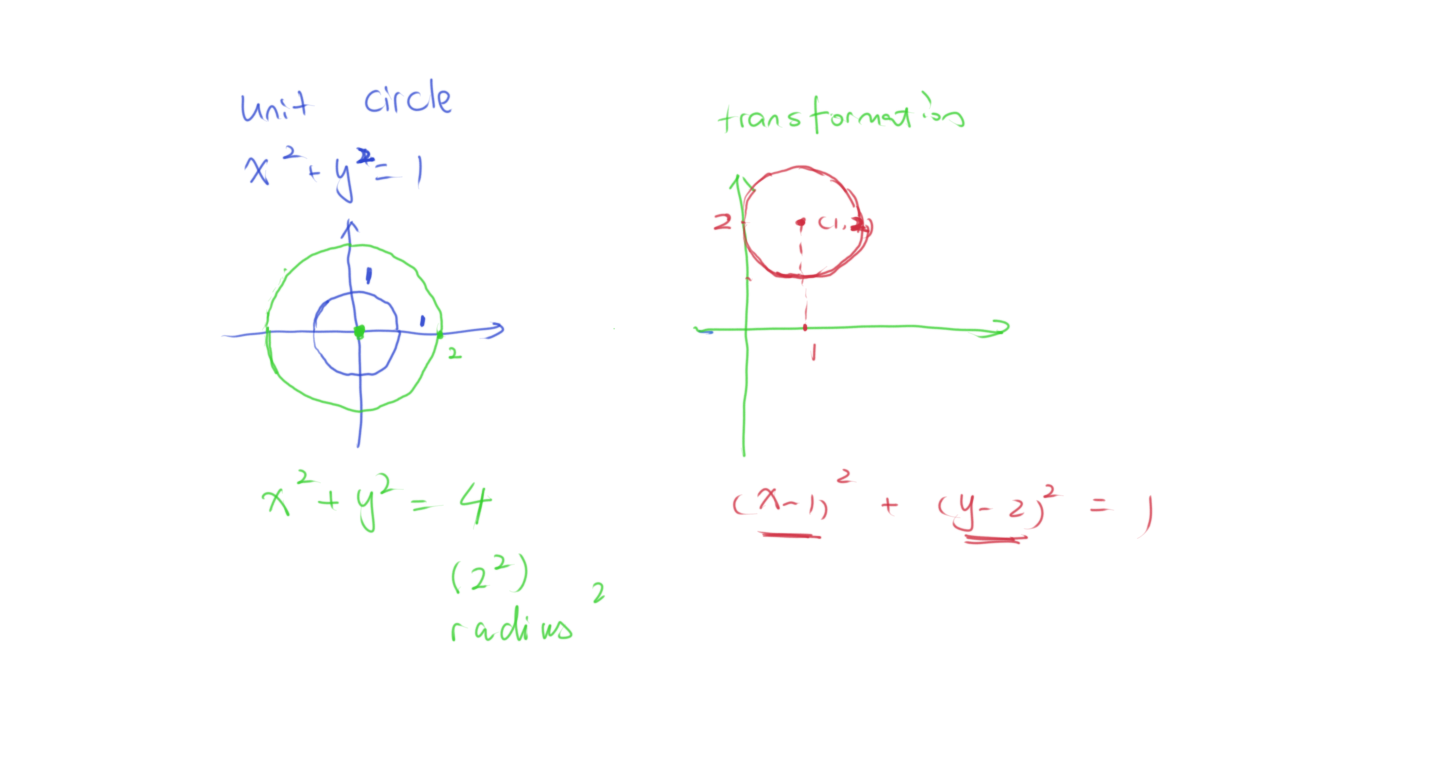 unit circle
x² + y² = 1
1
1
2
x² + y² = 4
(2²)
radius²
transformation
2
1
(x-1)² + (y-2)² = 1